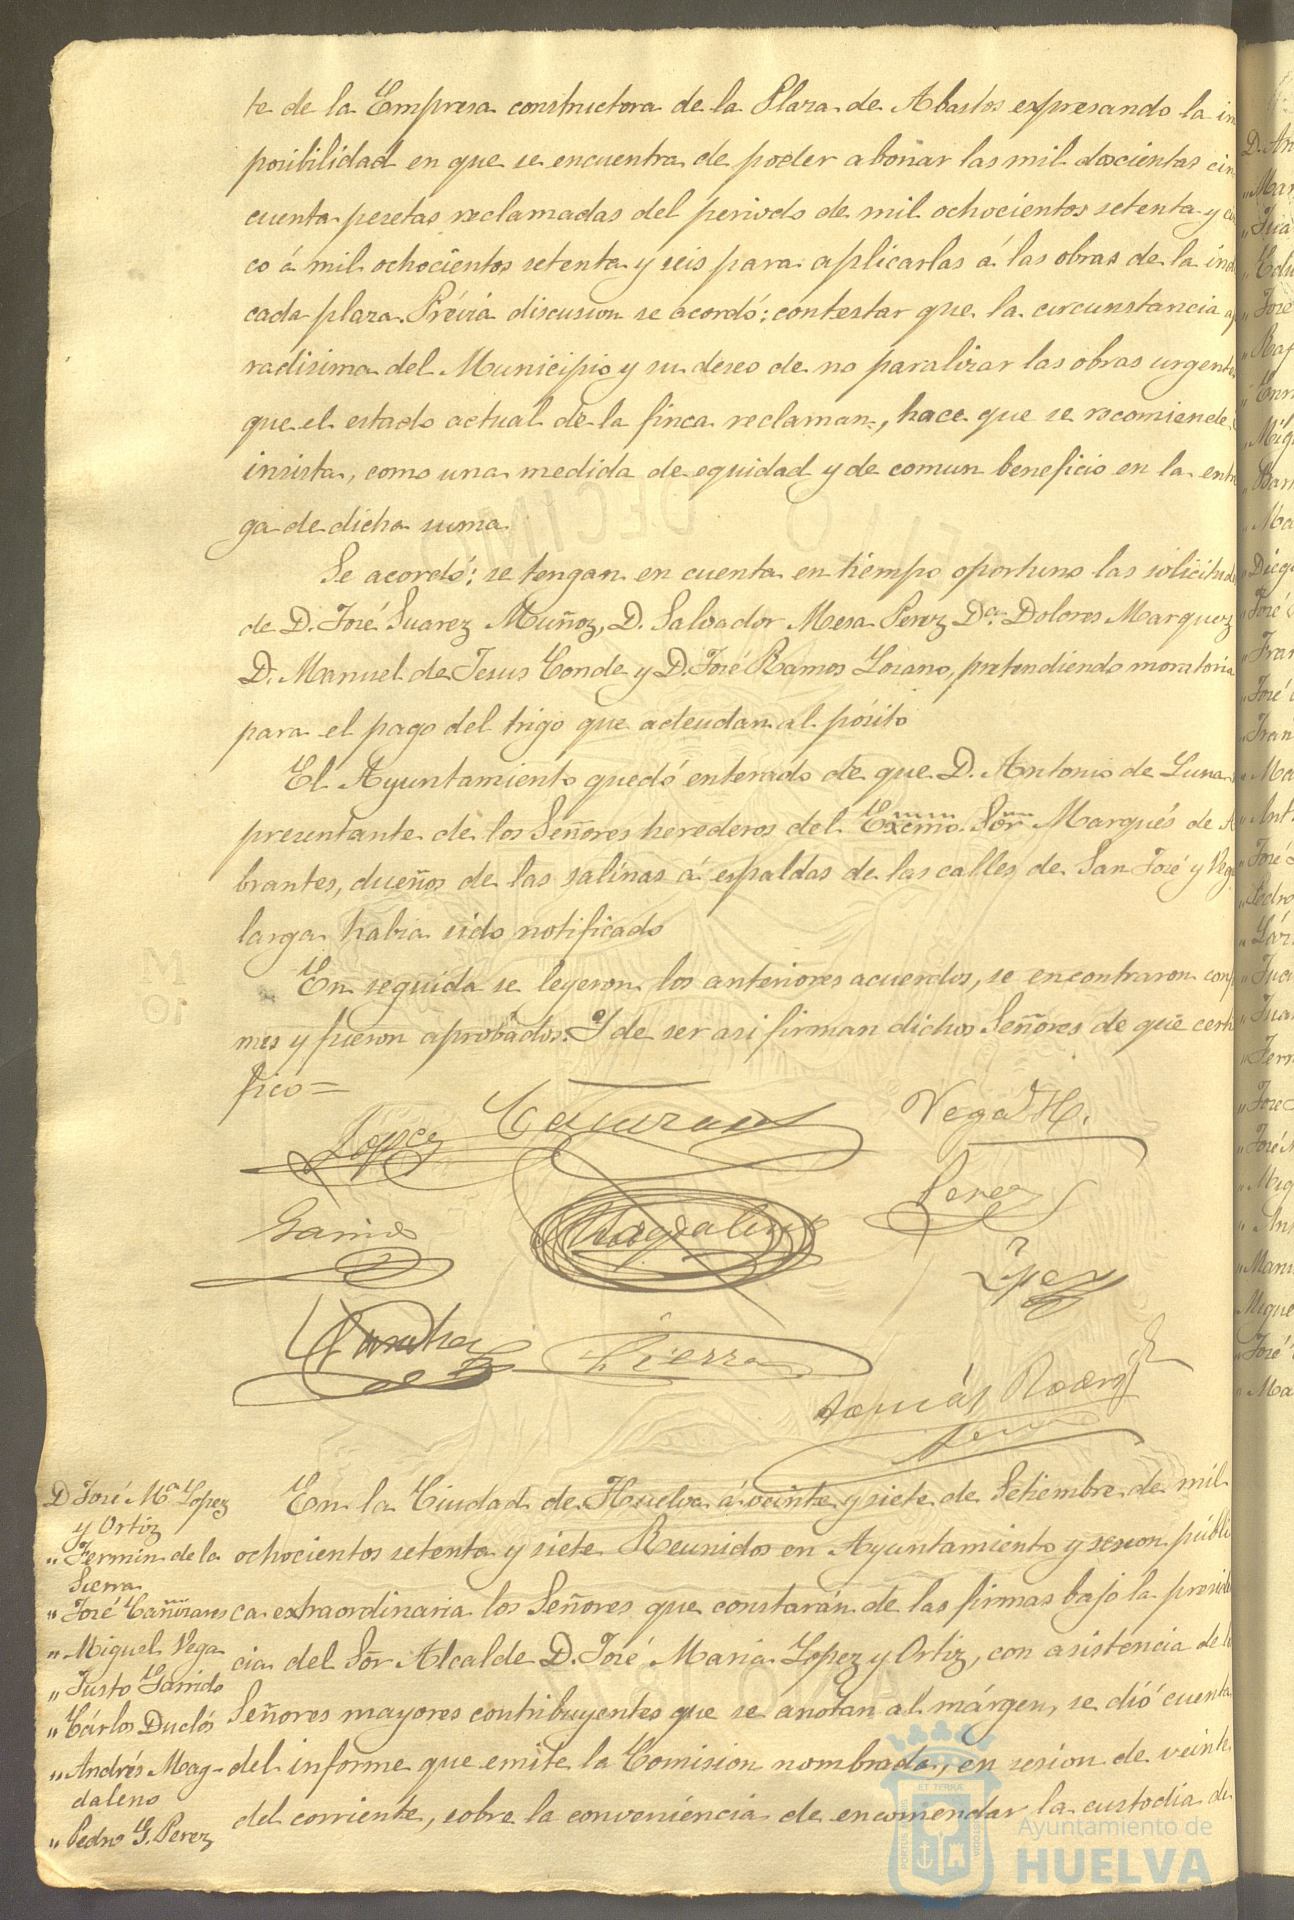 te de la Empresa constructora de la Plaza de Abastos expresando la im
posibilidad en que se encuentra de poder abonar las mil doscientas cin
cuenta pesetas reclamadas del periodo de mil ochocientos setenta y cin
co á mil ochocientos setenta y seis para aplicarlas á las obras de la indi
cada plaza. Prévia discusion se acordó: contestar que la circunstancia apu
radisima del Municipio y su deseo de no paralizar las obras urgentes
que el estado actual de la finca reclaman, hace que se recomiende é
insista, como una medida de equidad y de comun beneficio en la entre
ga de dicha suma.
Se acordó: se tengan en cuenta en tiempo oportuno las solicitudes
de D. José Suarez Muñoz, D. Salvador Mesa Perez Dª. Dolores Marquez
D. Manuel de Jesus Conde y D. José Ramos Lozano, pretendiendo moratoria
para el pago del trigo que adeudan al pósito
El Ayuntamiento quedó enterado de que D. Antonio de Luna
presentante de los Señores herederos del Excmo. Sōr Marqués de A
brantes, dueños de las salinas á espaldas de las calles de San José y Vega
larga habia sido notificado
En seguida se leyeron los anteriores acuerdos, se encontraron confor
mes y fueron aprobados. Y de ser asi firman dichos Señores de que certi
fico=
Lopez Cañizares Vega H.
Garrido Magdaleno Perez
Lopez
Sierra
Tomás Rodrig
D José Mª. Lopez
y Ortiz
" Fermin de la
Sierra
" José Cañizares
" Miguel Vega
" Justo Garrido
" Cárlos Duclós
" Andrés Mag-
daleno
" Pedro G. Perez
En la Ciudad de Huelva á veinte y siete de Setiembre de mil
ochocientos setenta y siete Reunidos en Ayuntamiento y sesion públi
ca extraordinaria los Señores que constarán de las firmas bajo la presiden
cia del Sōr Alcalde D. José Maria Lopez y Ortiz, con asistencia de los
Señores mayores contribuyentes que se anotan al márgen, se dió cuenta
del informe que emite la Comision nombrada, en sesion de veinte
del corriente, sobre la conveniencia de encomendar la custodia de
Ayuntamiento de
HUELVA